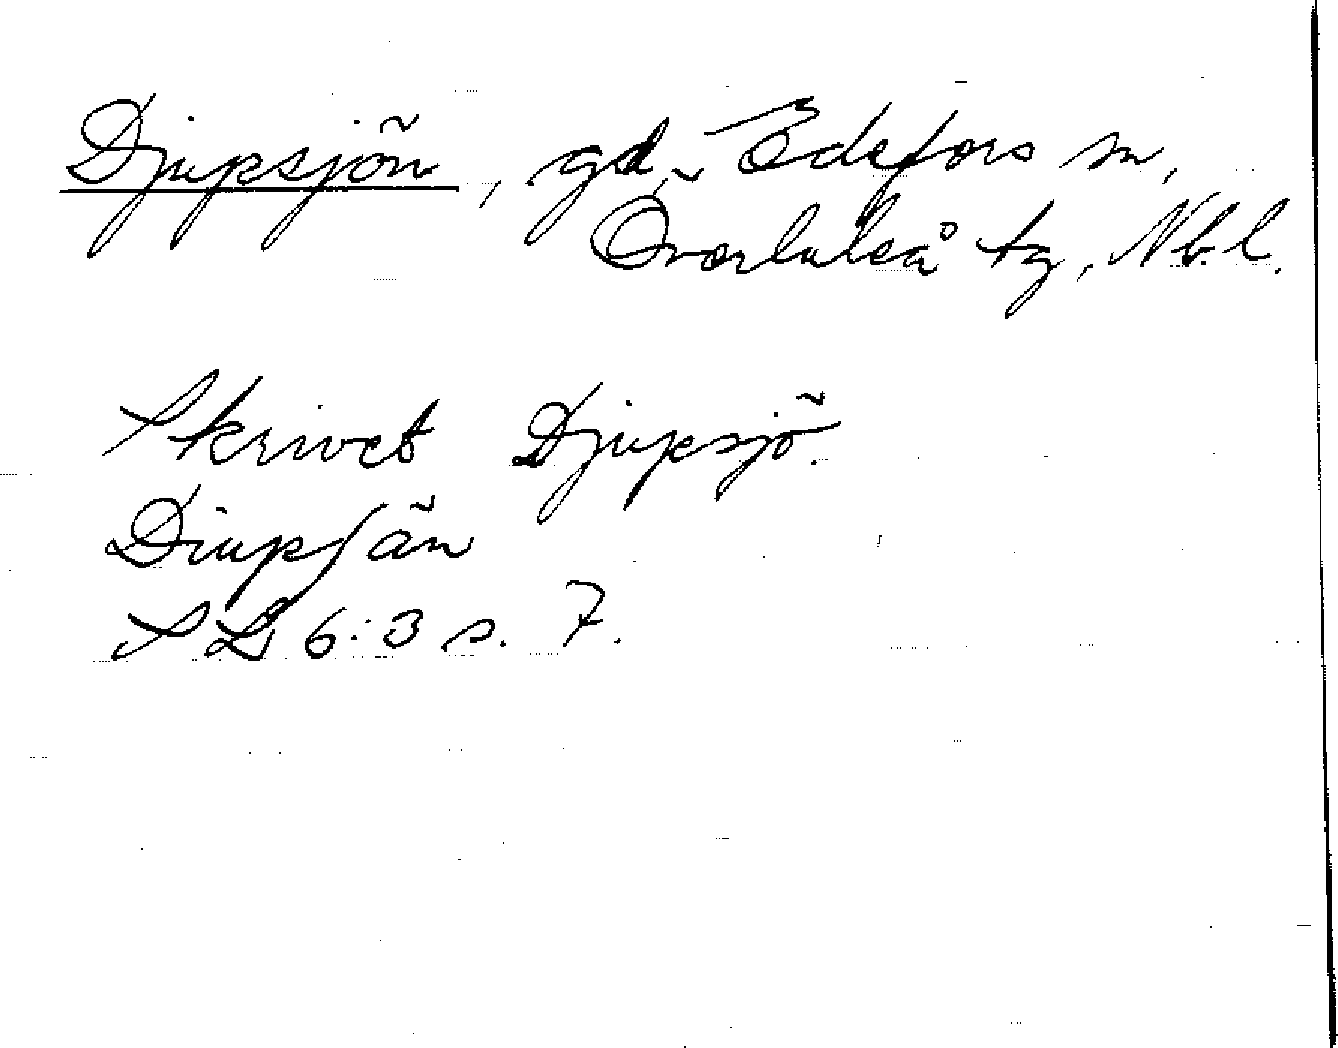 Djupsjön, gd, Edefors sn,
Överluleå tg, Nb.l.
Skrivet Djupsjö.
Diupsján
SL 6:3 s. 7.